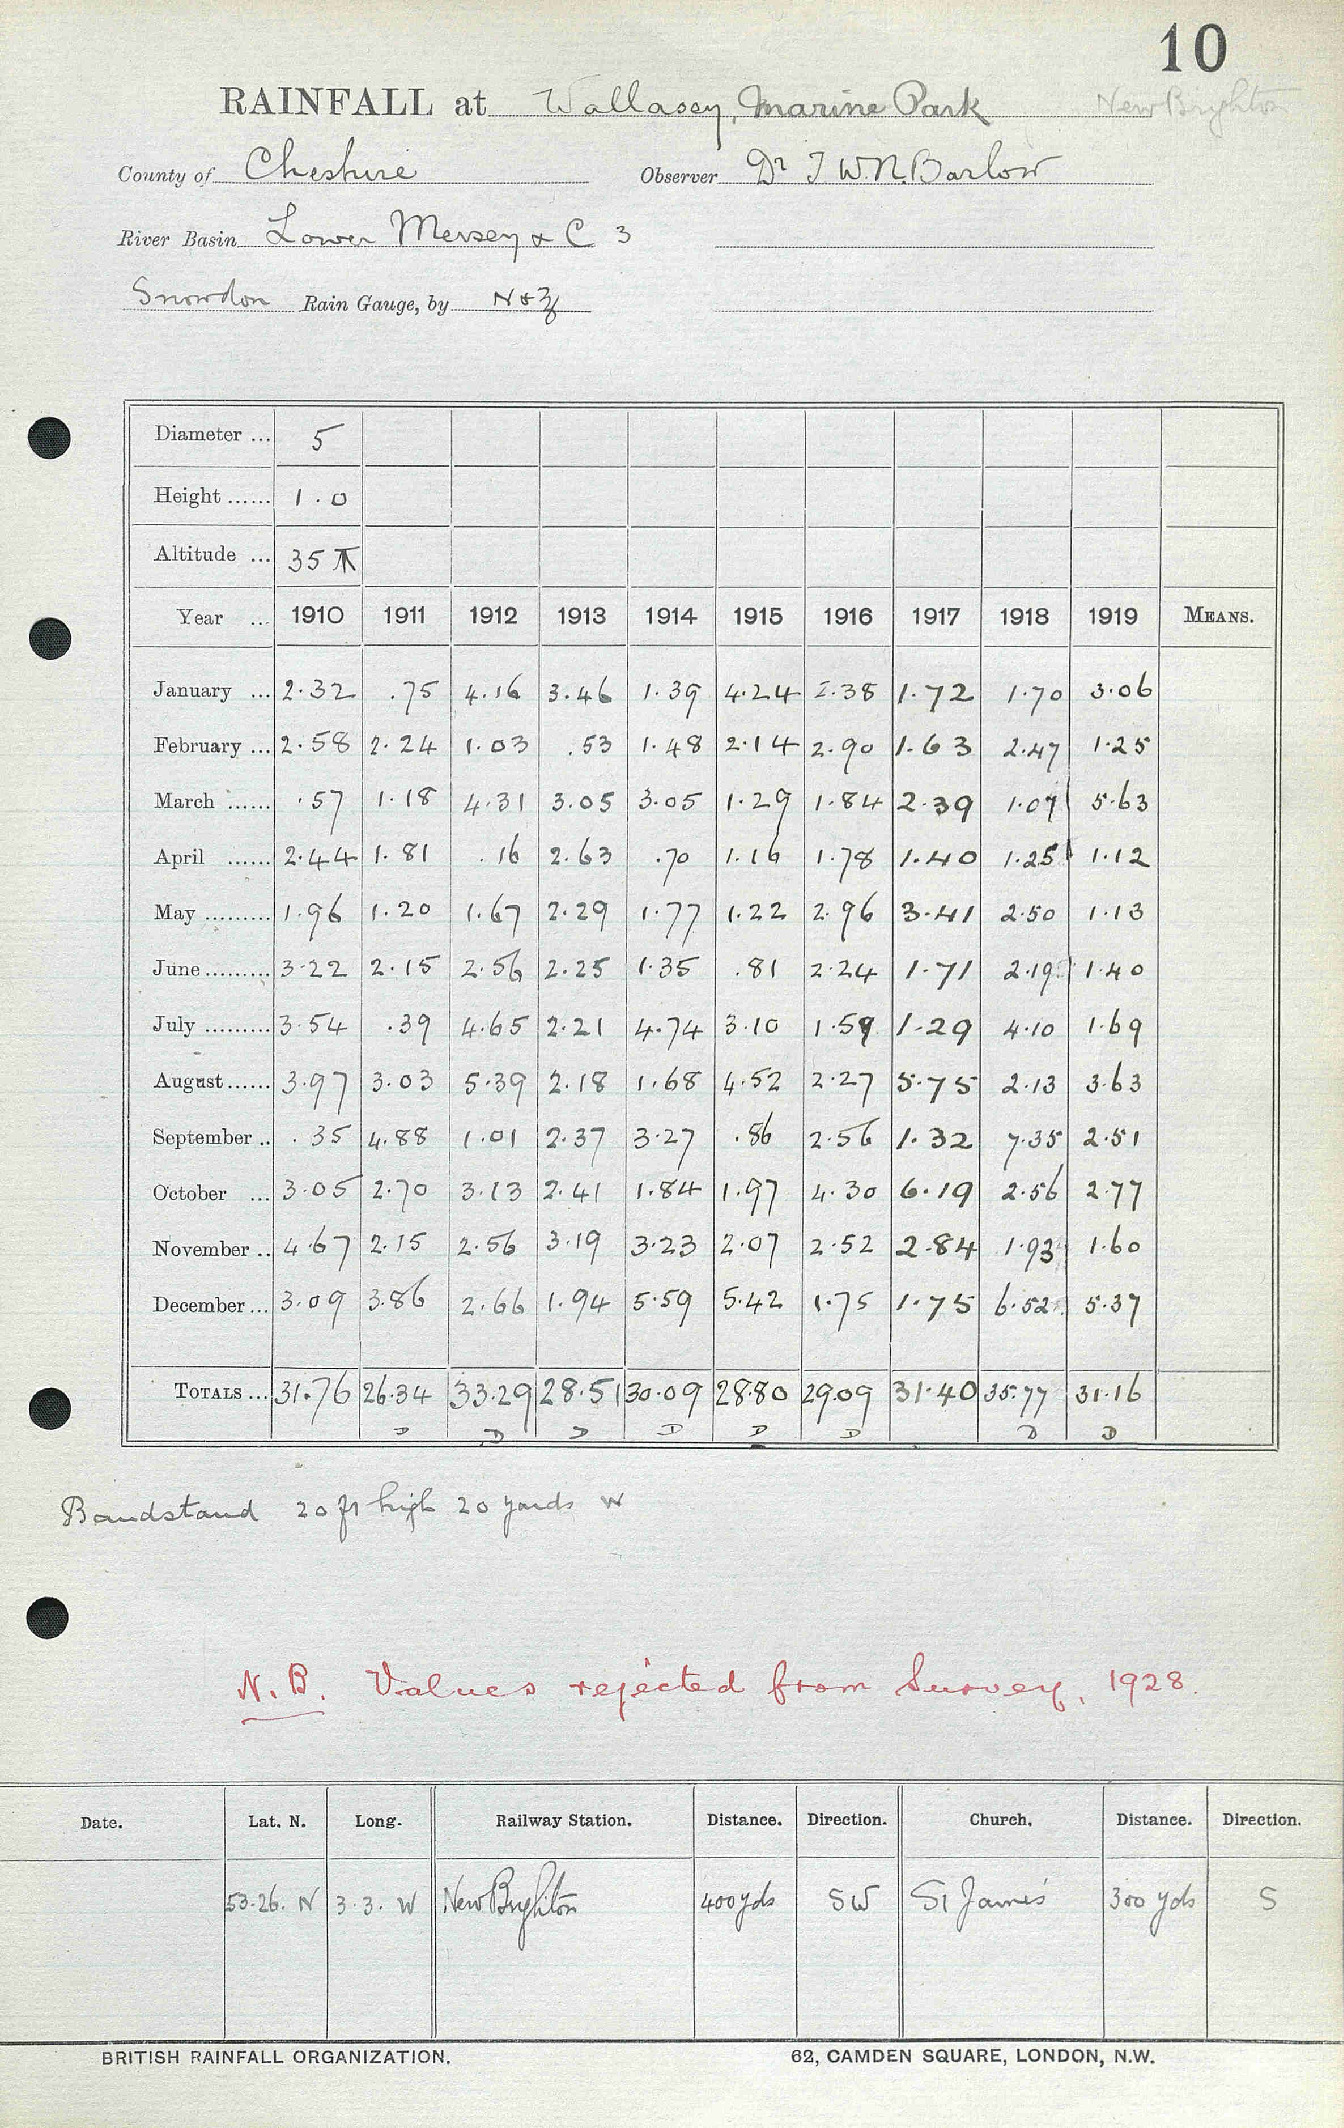 10
RAINFALL at Wallasey, Marine Park New Brighton
County of Cheshire Observer Dr T W.N. Barlow
River Basin Lower Mersey & C 3
Snowdon Rain Gauge, by N & Z
Diameter ... 5
Height ...... 1.0
Altitude ... 35
Year ... 1910 1911 1912 1913 1914 1915 1916 1917 1918 1919 MEANS.
January ... 2.32 .75 4.16 3.46 1.39 4.24 2.38 1.72 1.70 3.06
February ... 2.58 2.24 1.03 .53 1.48 2.14 2.90 1.63 2.47 1.25
March ...... .57 1.18 4.31 3.05 3.05 1.29 1.84 2.39 1.07 5.63
April ...... 2.44 1.81 .16 2.63 .70 1.16 1.78 1.40 1.25 1.12
May ......... 1.96 1.20 1.67 2.29 1.77 1.22 2.96 3.41 2.50 1.13
June ......... 3.22 2.15 2.56 2.25 1.35 .81 2.24 1.71 2.19 1.40
July ......... 3.54 .39 4.65 2.21 4.74 3.10 1.59 1.29 4.10 1.69
August ...... 3.97 3.03 5.39 2.18 1.68 4.52 2.27 5.75 2.13 3.63
September .. .35 4.88 1.01 2.37 3.27 .86 2.56 1.32 7.35 2.51
October ... 3.05 2.70 3.13 2.41 1.84 1.97 4.30 6.19 2.56 2.77
November .. 4.67 2.15 2.56 3.19 3.23 2.07 2.52 2.84 1.93 1.60
December ... 3.09 3.86 2.66 1.94 5.59 5.42 1.75 1.75 6.52 5.37
TOTALS ... 31.76 26.34 33.29 28.51 30.09 28.80 29.09 31.40 35.77 31.16
D D D D D D D D
Bandstand 20 ft high 20 yards W
N.B. Values rejected from Survey, 1928.
Date. Lat. N. Long. Railway Station. Distance. Direction. Church. Distance. Direction.
53.26. N 3.3. W New Brighton 400 yds SW St James' 300 yds S
BRITISH RAINFALL ORGANIZATION. 62, CAMDEN SQUARE, LONDON, N.W.